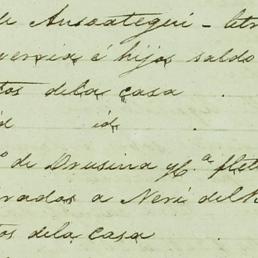 de Ansoategui - letr
é hijos saldo
tos dela casa
id id
de Drusina y C.ª flete
rados a Neri del B
tos dela casa